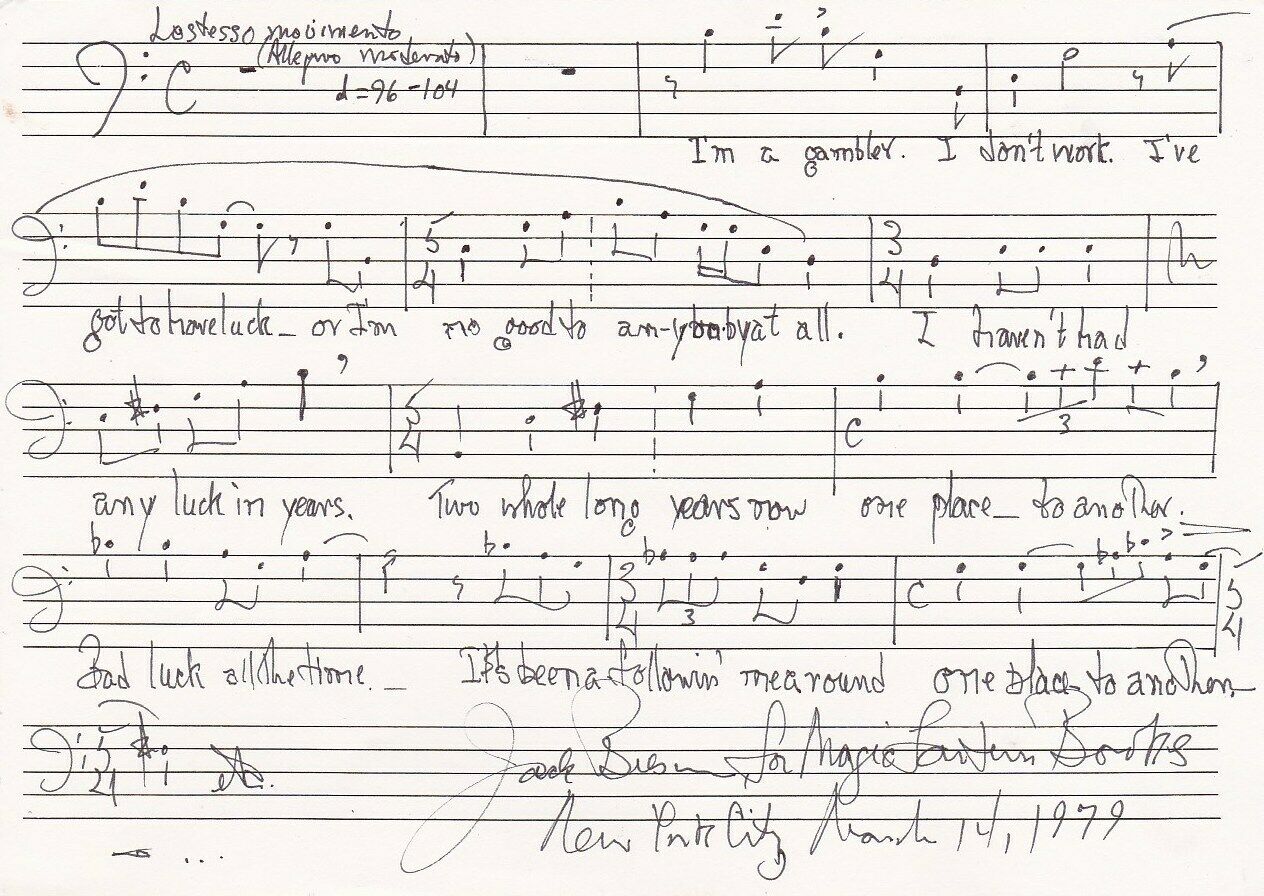 Lo stesso movimento
(Allegro moderato)
d = 96 - 104
C
I'm a gambler. I don't work. I've
5 4 3 4
got to have luck _ or I'm no good to an-ybody at all. I haven't had
5 4 C 3
any luck in years. Two whole long years now one place _ to another.
3 4 3 C 5 4
Bad luck all the time. _ It's been a-followin' me around one place to another _
5 4 etc. Jack Beeson for Magic Lantern Books
New York City March 14, 1979
...